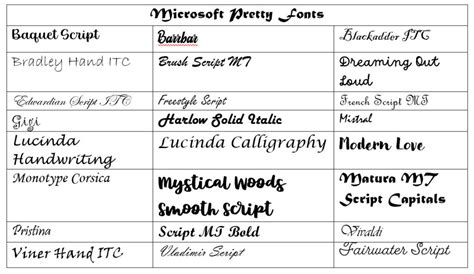 Microsoft Pretty Fonts
Baquet Script Barrbar Blackadder ITC
Bradley Hand ITC Brush Script MT Dreaming Out
Loud
Edwardian Script ITC Freestyle Script French Script MT
Gigi Harlow Solid Italic Mistral
Lucinda
Handwriting Lucinda Calligraphy Modern Love
Monotype Corsica Mystical Woods
Smooth Script Matura MT
Script Capitals
Pristina Script MT Bold Vivaldi
Viner Hand ITC Vladimir Script Fairwater Script